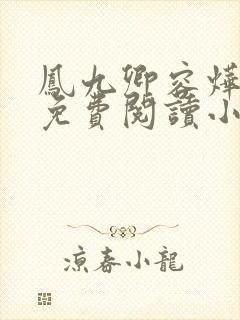 鳳九卿容燁
免費閱讀小
涼春小龍